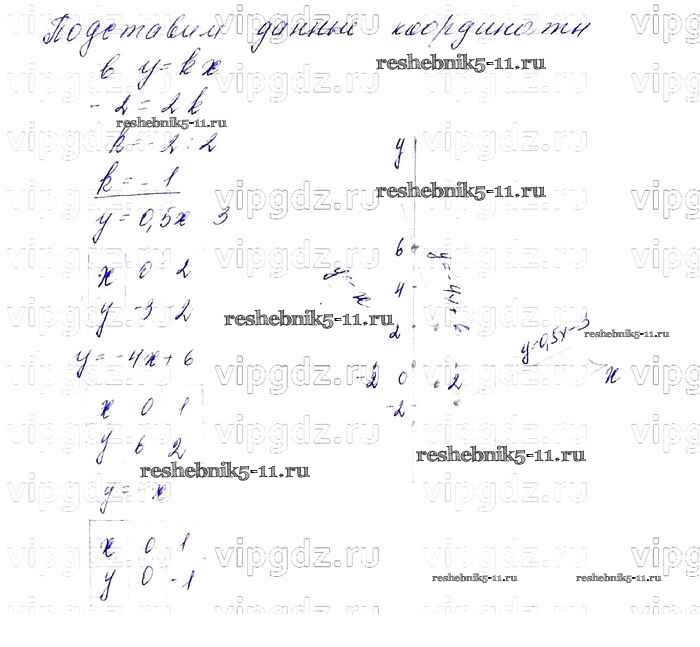 Подставим данные координаты
в y = kx
-2 = 2k
k = -2 : 2
k = -1
y = 0,5x 3
x 0 2
y -3 -2
y = -4x + 6
x 0 1
y 6 2
y = x
x 0 1
y 0 -1
y
6
4
2
-2 0 2
-2
x
y = -4x + 6
y = 0,5x - 3
y = x
reshebnik5-11.ru
reshebnik5-11.ru
reshebnik5-11.ru
reshebnik5-11.ru
reshebnik5-11.ru
reshebnik5-11.ru
reshebnik5-11.ru
reshebnik5-11.ru
reshebnik5-11.ru
vipgdz.ru